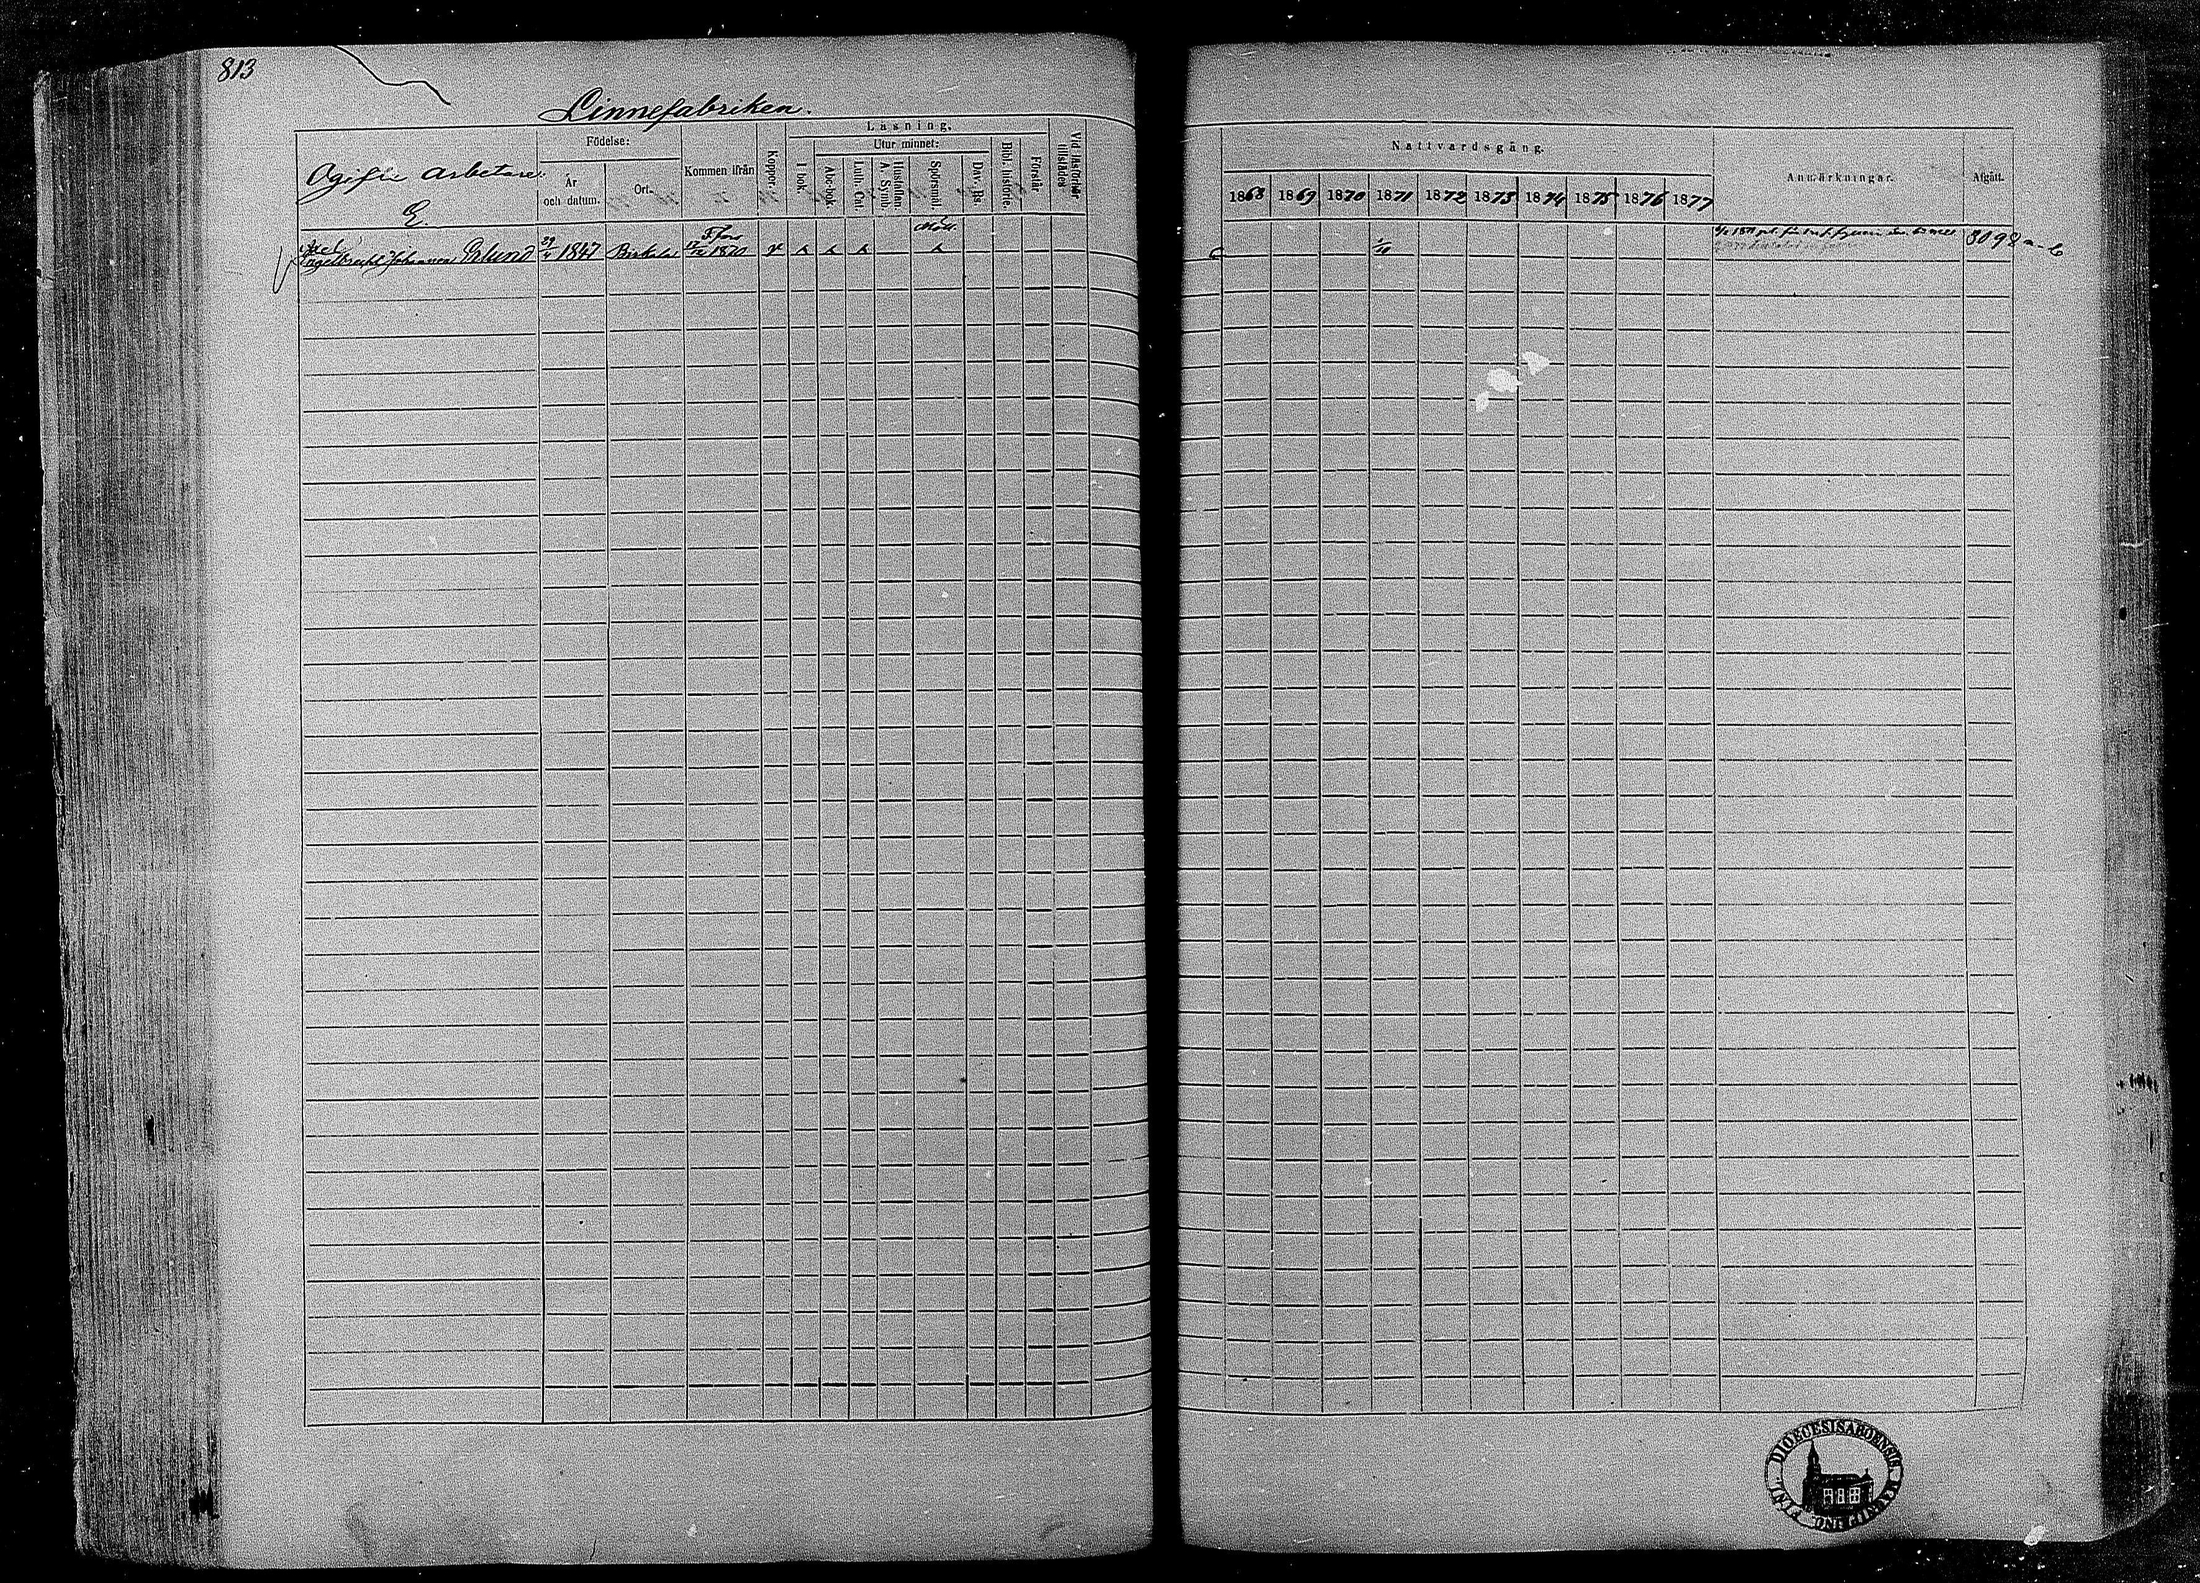 813
Linnefabriken.
Ogifte arbetare.
E.
Födelse:
År och datum.
Ort.
Kommen ifrån
Koppor.
Läsning.
I bok.
Utur minnet:
Abc-bok.
Luth. Cat.
Hustaflan. A. Symb.
Spörsmål.
Dav. Ps.
Bibl. historie.
Förstår
Vid läsförhör tillstädes
Nattvardsgång.
1868 1869 1870 1871 1872 1873 1874 1875 1876 1877
Anmärkningar.
Afgått.
Axel
Engelbrecht Johannes Erlund 29/4 1847 Birkala T.fors 17/12 1870 v
Möll.
1/10
3098
DIOECESIS ABOENSIS
FINL.